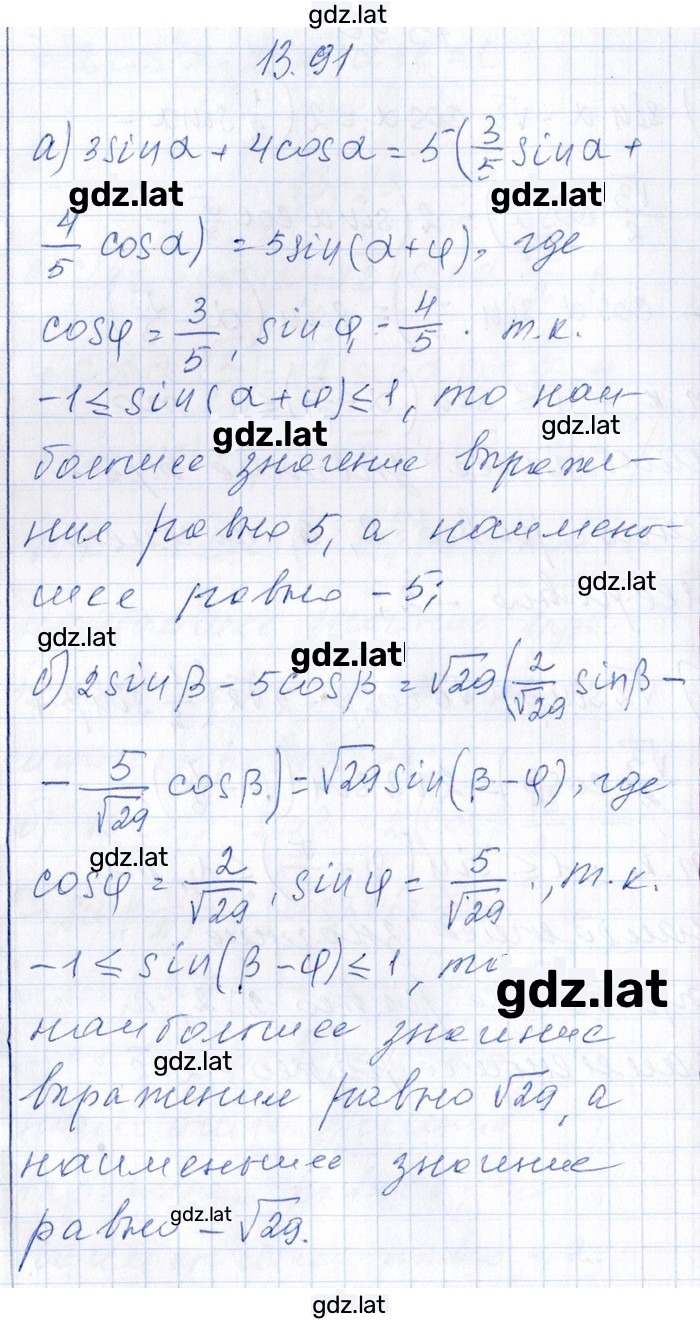 gdz.lat
13.91
а) 3sinα + 4cosα = 5(3/5 sinα +
gdz.lat gdz.lat
4/5 cosα) = 5sin(α+φ), где
cosφ = 3/5, sinφ = 4/5. т.к.
-1 ≤ sin(α+φ) ≤ 1, то наи-
gdz.lat gdz.lat
большее значение выраже-
ния равно 5, а наимень-
шее равно -5;
gdz.lat
gdz.lat gdz.lat
б) 2sinβ - 5cosβ = √29(2/√29 sinβ -
- 5/√29 cosβ) = √29sin(β-φ), где
gdz.lat
cosφ = 2/√29, sinφ = 5/√29., т.к.
-1 ≤ sin(β-φ) ≤ 1, то
gdz.lat
наибольшее значение
gdz.lat
выражения равно √29, а
наименьшее значение
gdz.lat
равно -√29.
gdz.lat